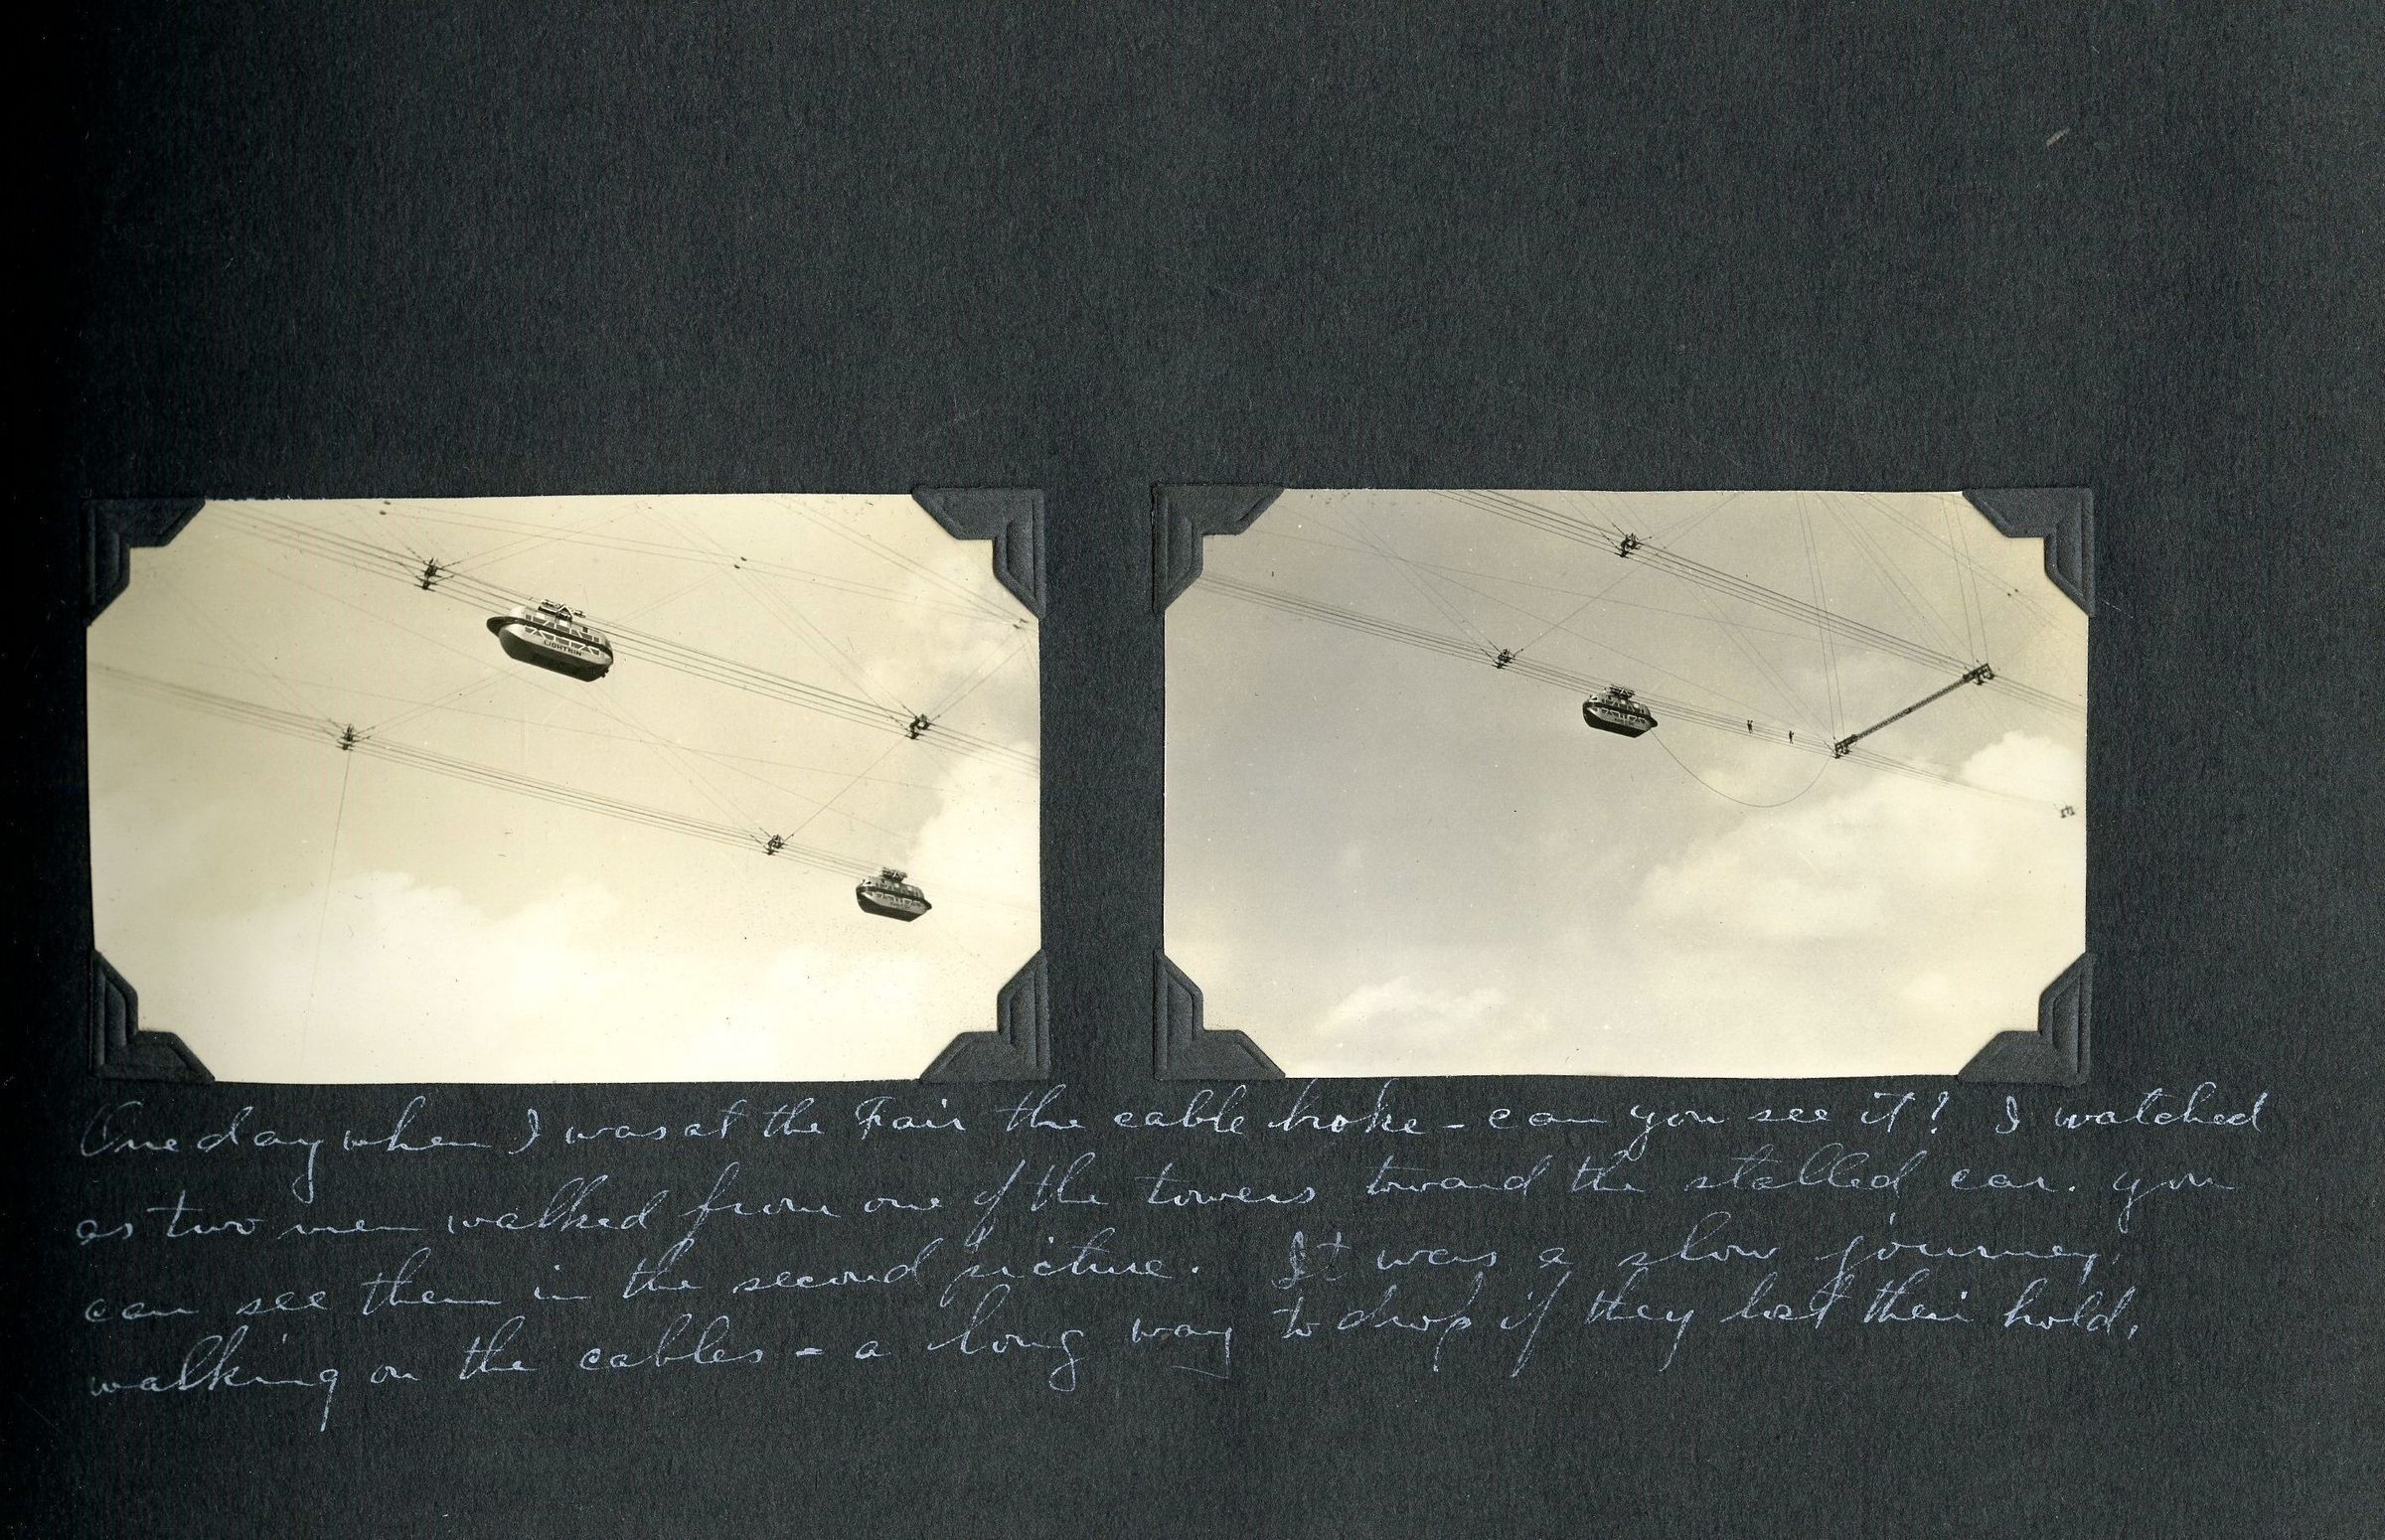 LIGHTNIN'
One day when I was at the Fair the cable broke - can you see it? I watched
as two men walked from one of the towers toward the stalled car. you
can see them in the second picture. It was a slow journey,
walking on the cables - a long way to drop if they lost their hold.